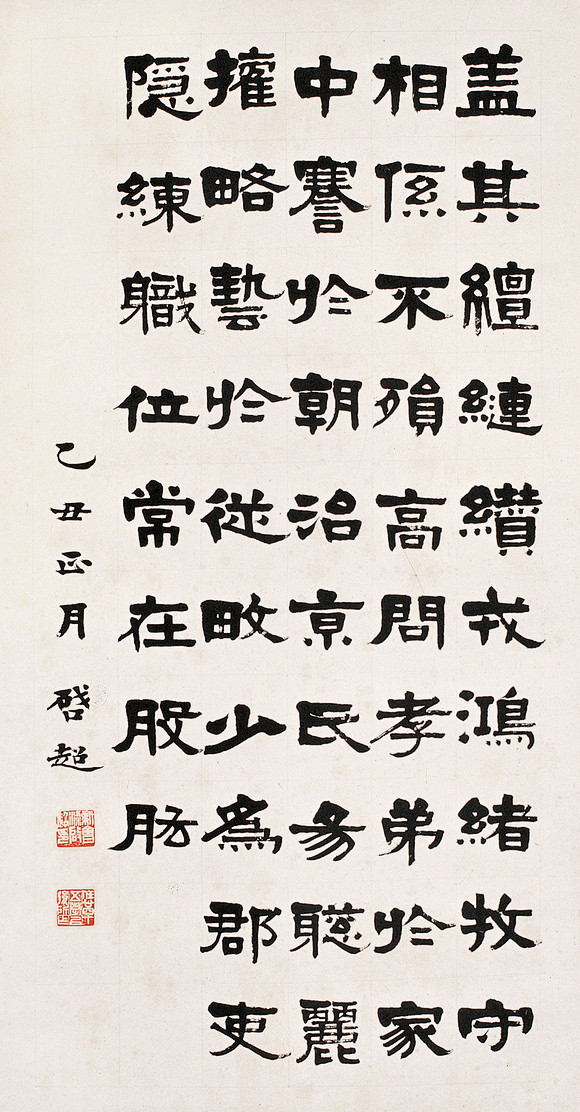 盖其繵縺纘戎鴻緒牧守
相係不殞高問孝弟於家
中謇於朝治京氏易聰麗
權略藝於從畋少爲郡吏
隱練職位常在股肱
乙丑正月 啓超